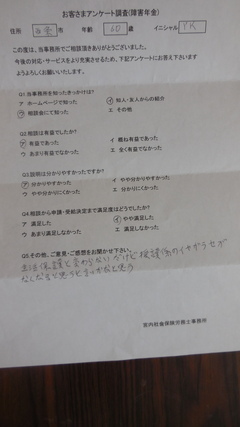 お客さまアンケート調査(障害年金)
住所 市 年齢 60 歳 イニシャル
この度は、当事務所でご相談頂きありがとうございました。
今後の対応・サービスをより充実させるため、下記アンケートにお答え下さいます
ようよろしくお願いいたします。
Q1 当事務所を知ったきっかけは?
ア ホームページで知った イ 知人・友人からの紹介
ウ 相談会にて知った エ その他
Q2 相談は有益でしたか?
ア 有益であった イ 概ね有益であった
ウ あまり有益でなかった エ 全く有益でなかった
Q3 説明は分かりやすかったですか?
ア 分かりやすかった イ やや分かりやすかった
ウ やや分かりにくかった エ 分かりにくかった
Q4 相談から申請・受給決定まで満足度はどうでしたか?
ア 満足した イ やや満足した
ウ あまり満足しなかった エ 満足しなかった
Q5 その他、ご意見・ご感想をお聞かせ下さい。
生活保護と変わらないだけど
なくなると思うといいかなと思う
宮内社会保険労務士事務所